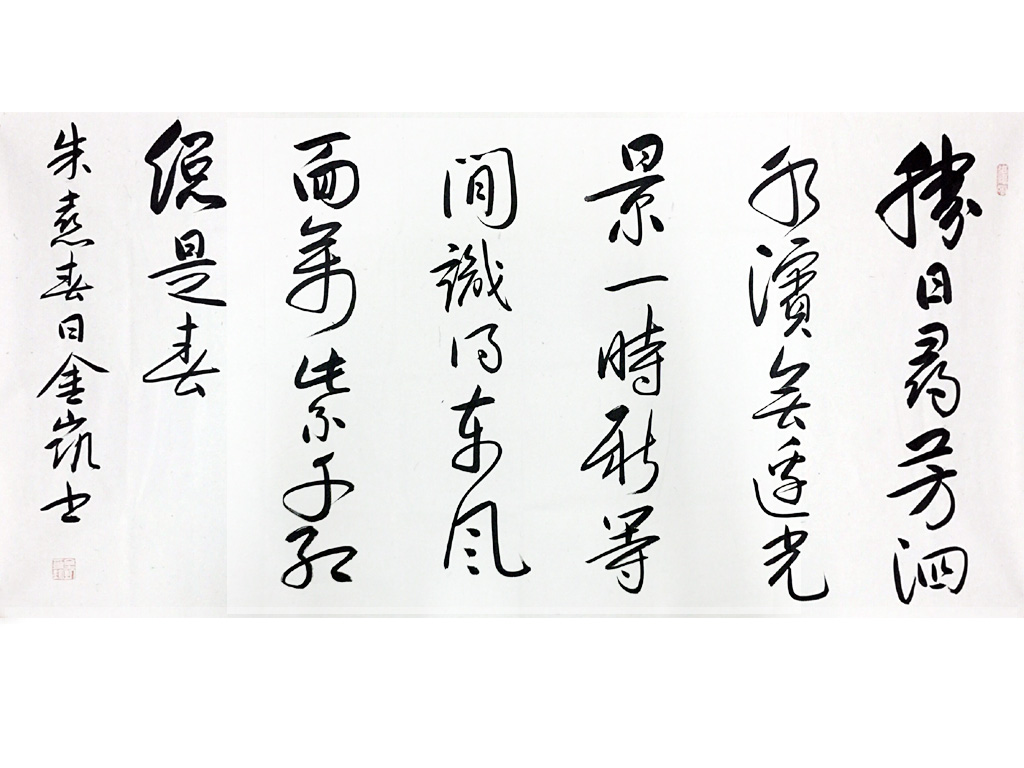 勝日尋芳泗
水濱無邊光
景一時新等
間識得東風
面萬紫千紅
總是春
朱熹春日金凱書